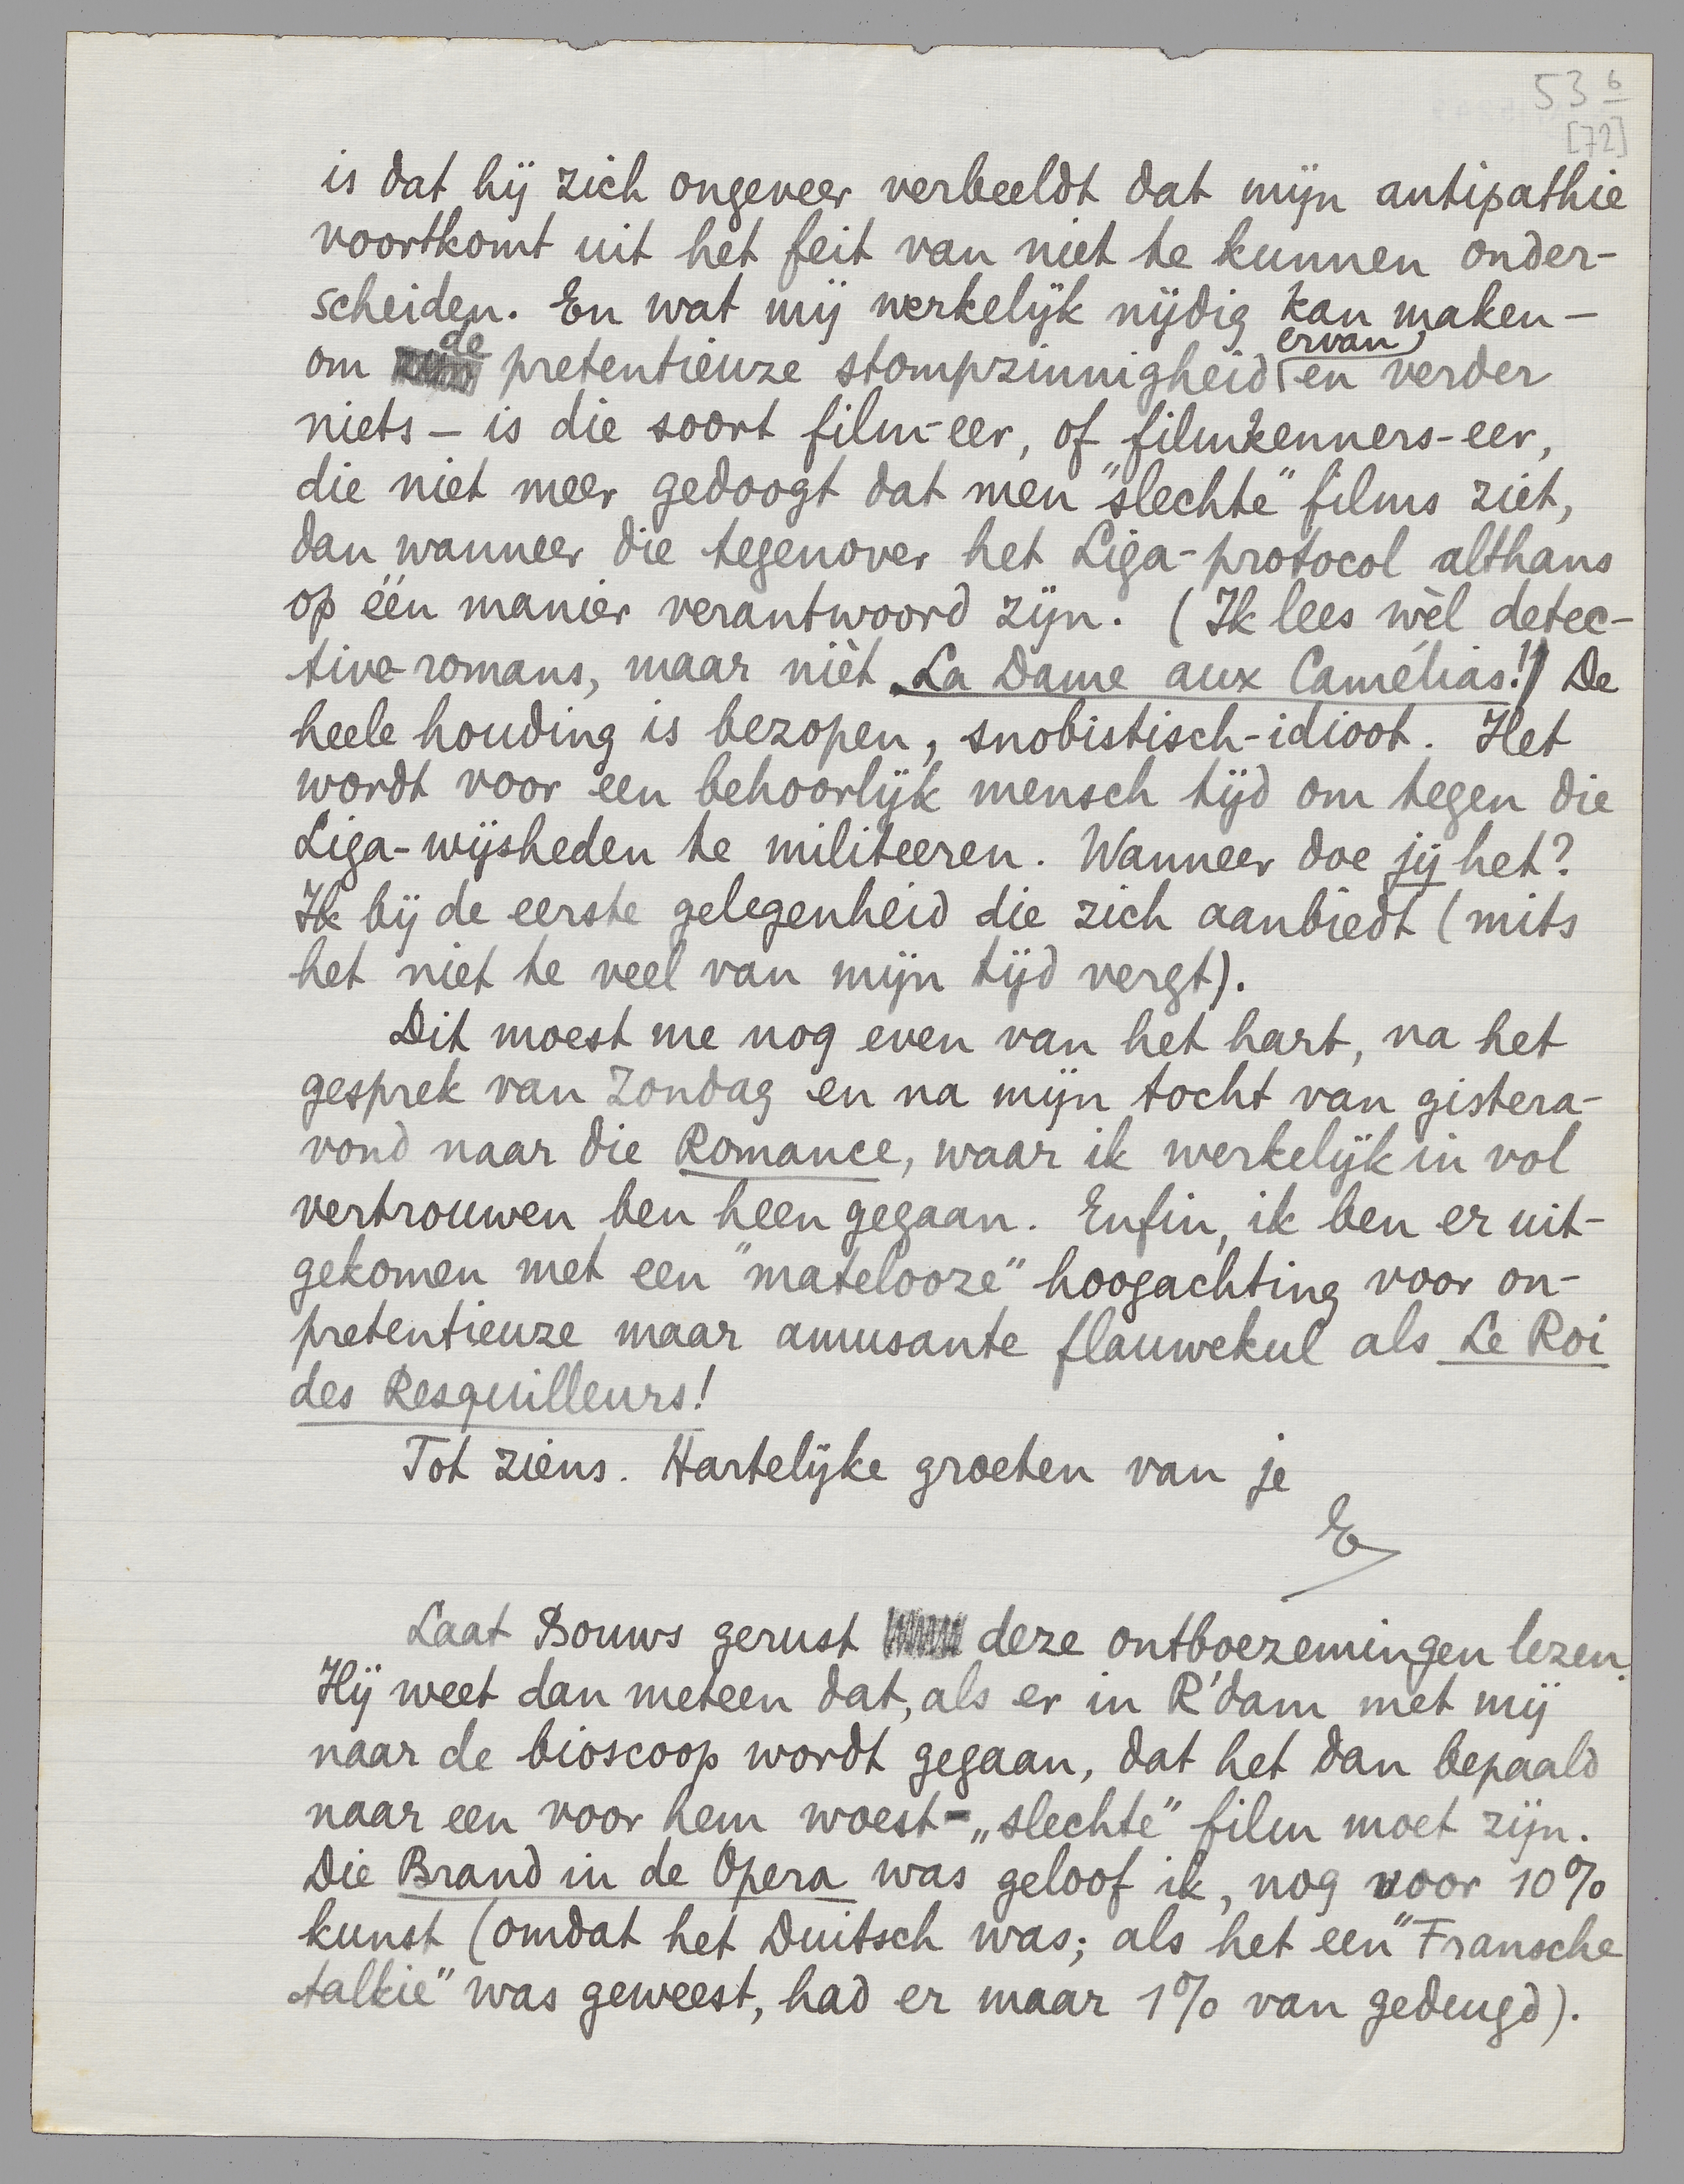 53 6
[72]
is dat hij zich ongeveer verbeeldt dat mijn antipathie
voortkomt uit het feit van niet te kunnen onder-
scheiden. En wat mij werkelijk nijdig kan maken –
om de pretentieuze stompzinnigheid ervan, en verder
niets – is die soort film-eer, of filmkenners-eer,
die niet meer gedoogt dat men "slechte" films ziet,
dan wanneer die tegenover het Liga-protocol althans
op één manier verantwoord zijn. (Ik lees wèl detec-
tive-romans, maar nièt La Dame aux Camélias!) De
heele houding is bezopen, snobistisch-idioot. Het
wordt voor een behoorlijk mensch tijd om tegen die
Liga-wijsheden te militeeren. Wanneer doe jij het?
Ik bij de eerste gelegenheid die zich aanbiedt (mits
het niet te veel van mijn tijd vergt).
Dit moest me nog even van het hart, na het
gesprek van Zondag en na mijn tocht van gistera-
vond naar die Romance, waar ik werkelijk in vol
vertrouwen ben heen gegaan. Enfin, ik ben er uit-
gekomen met een "matelooze" hoogachting voor on-
pretentieuze maar amusante flauwekul als Le Roi
des Resquilleurs!
Tot ziens. Hartelijke groeten van je
E
Laat Bouws gerust deze ontboezemingen lezen.
Hij weet dan meteen dat, als er in R'dam met mij
naar de bioscoop wordt gegaan, dat het dan bepaald
naar een voor hem woest-„slechte" film moet zijn.
Die Brand in de Opera was geloof ik, nog voor 10%
kunst (omdat het Duitsch was; als het een "Fransche
talkie" was geweest, had er maar 1% van gedeugd).